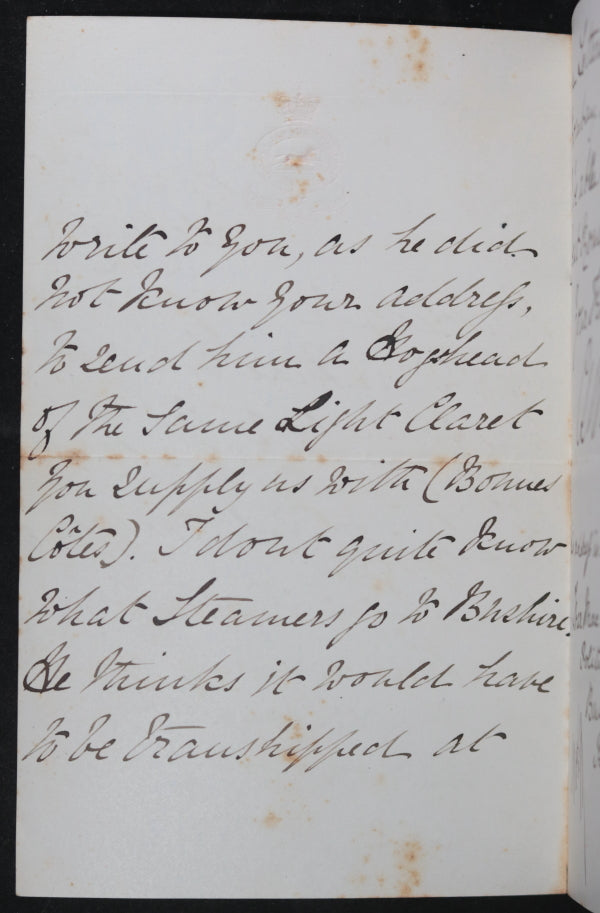 write to you, as he did
not know your address,
to send him a Hogshead
of the same Light Claret
you supply us with (Bonnes
Côtes). I dont quite know
what Steamers go to Bushire.
He thinks it would have
to be transhipped at